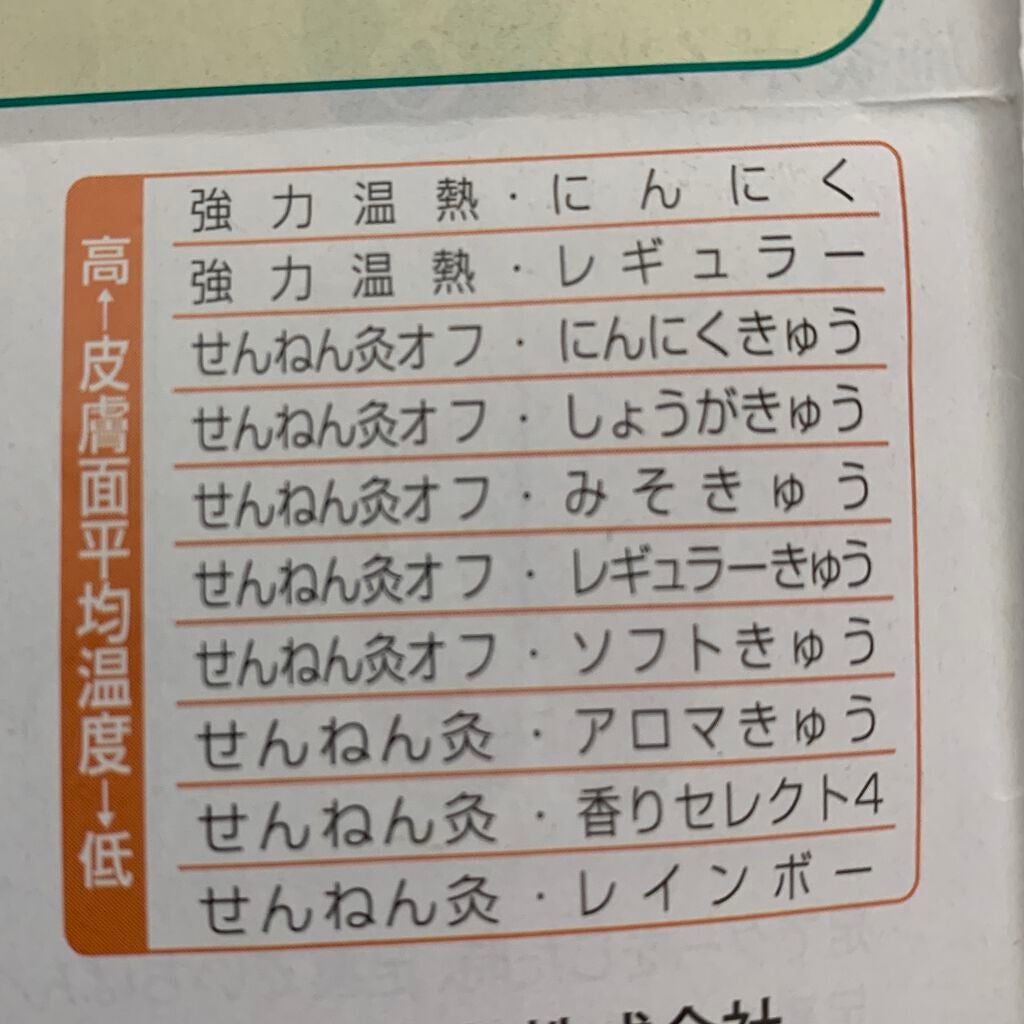 高↑皮膚面平均温度↓低
強力温熱・にんにく
強力温熱・レギュラー
せんねん灸オフ・にんにくきゅう
せんねん灸オフ・しょうがきゅう
せんねん灸オフ・みそきゅう
せんねん灸オフ・レギュラーきゅう
せんねん灸オフ・ソフトきゅう
せんねん灸・アロマきゅう
せんねん灸・香りセレクト4
せんねん灸・レインボー
株式会社